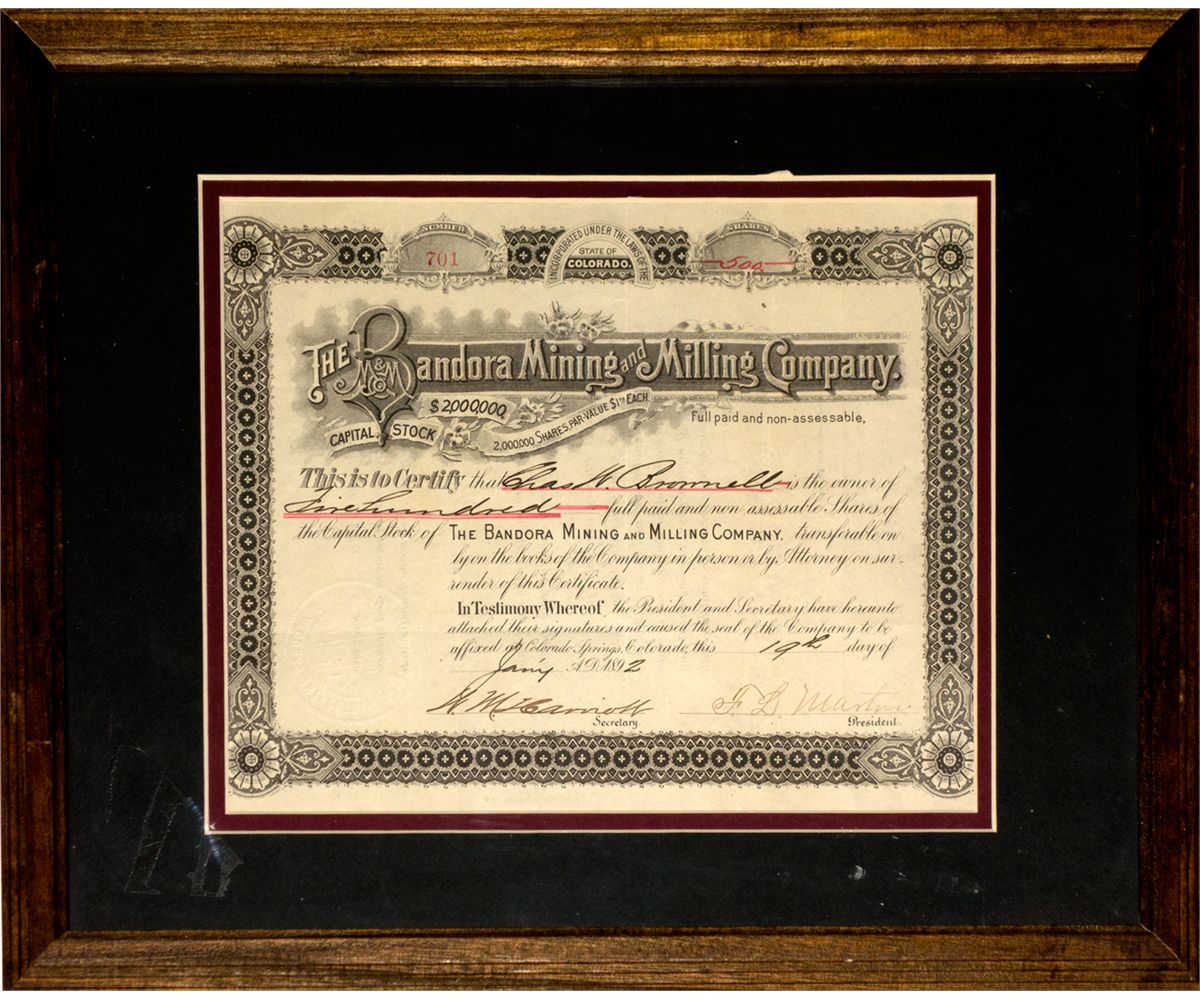 NUMBER
701
INCORPORATED UNDER THE LAWS OF THE
STATE OF
COLORADO.
SHARES
500
THE Bandora Mining and Milling Company.
M&M Co
$2,000,000.
CAPITAL STOCK
2,000,000 SHARES, PAR VALUE $1.00 EACH.
Full paid and non-assessable,
This is to Certify that Chas W. Brownell is the owner of
five hundred full paid and non-assessable Shares of
the Capital Stock of THE BANDORA MINING AND MILLING COMPANY, transferable on
ly on the books of the Company in person or by Attorney on sur-
render of this Certificate.
In Testimony Whereof, the President and Secretary have hereunto
attached their signatures and caused the seal of the Company to be
affixed at Colorado Springs, Colorado, this 19th day of
Jany A.D. 1892
F. L. Martin
Secretary.
President.